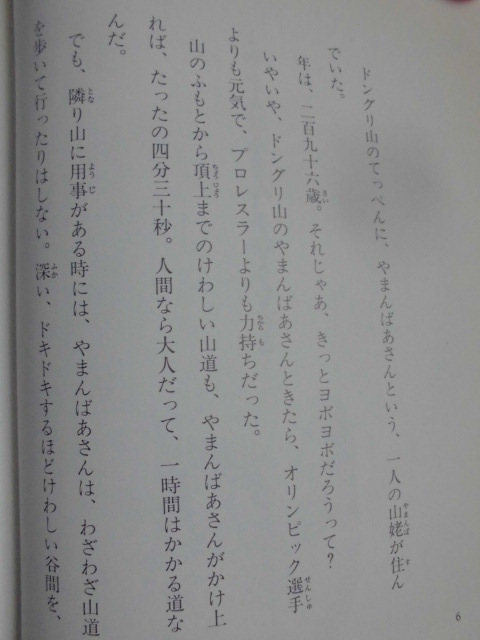 ドングリ山のてっぺんに、やまんばあさんという、一人の山姥が住ん
でいた。
年は、二百九十六歳。それじゃあ、きっとヨボヨボだろうって？
いやいや、ドングリ山のやまんばあさんときたら、オリンピック選手
よりも元気で、プロレスラーよりも力持ちだった。
山のふもとから頂上までのけわしい山道も、やまんばあさんがかけ上
れば、たったの四分三十秒。人間なら大人だって、一時間はかかる道な
んだ。
でも、隣り山に用事がある時には、やまんばあさんは、わざわざ山道
を歩いて行ったりはしない。深い、ドキドキするほどけわしい谷間を、
6